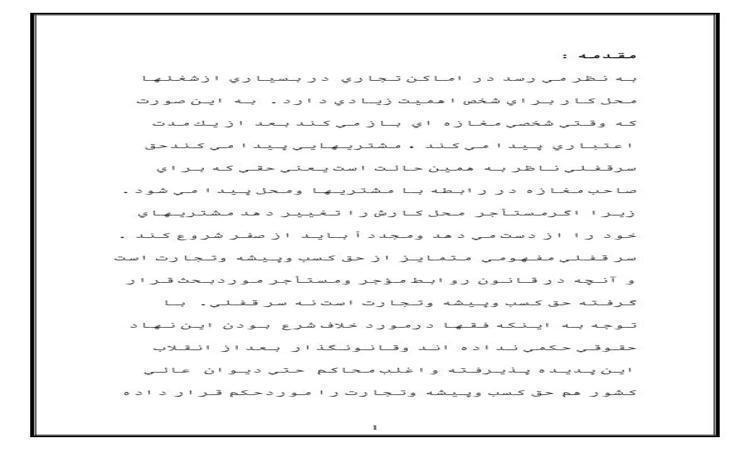 مقدمه :
به نظر مي رسد در اماكن تجاري در بسياري ازشغلها
محل كار بر اي شخص اهميت زيادي دارد. به اين صورت
كه وقتي شخصي مغازه اي باز مي كند بعد از يك مدت
اعتباري پيدا مي كند . مشتريهايي پيدا مي كندحق
سرقفلي ناظر به همين حالت است يعني حقي كه بر اي
صاحب مغازه در رابطه با مشتريها ومحل پيدا مي شود .
زيرا اگرمستأجر محل كارش را تغيير دهد مشتريهاي
خود را از دست مي دهد ومجدداً بايد از صفر شروع كند .
سرقفلي مفهومي متمايز از حق كسب وپيشه وتجارت است
و آنچه در قانون روابط مؤجر ومستأجر موردبحث قرار
گرفته حق كسب وپيشه وتجارت است نه سرقفلي. با
توجه به اينكه فقها درمورد خلاف شرع بودن اين نهاد
حقوقي حكمي نداده اند وقانونگذار بعد از انقلاب
اين پديده پذيرفته و اغلب محاكم حتي ديوان عالي
كشور هم حق كسب وپيشه وتجارت را موردحكم قرار داده
1